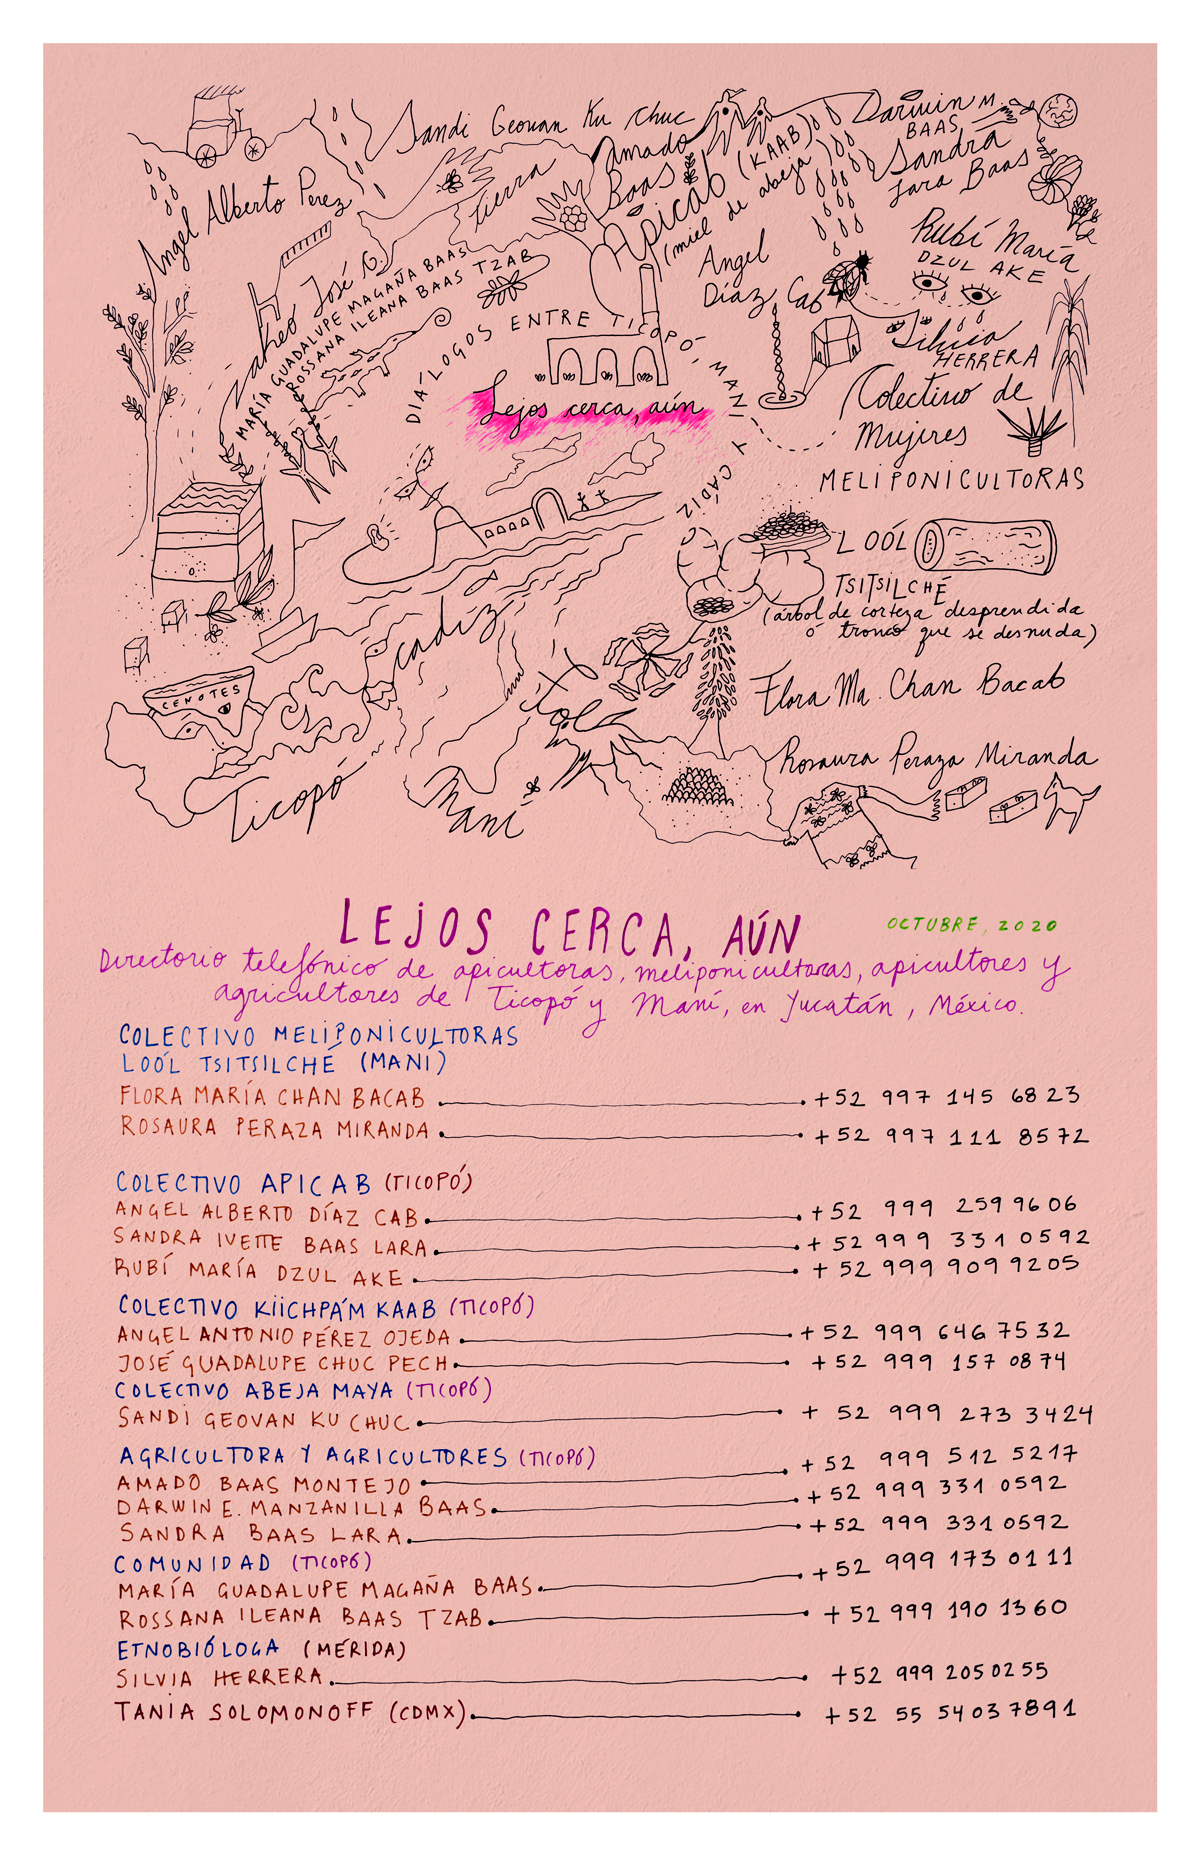 Sandi Geovan Ku Chuc
Amado
Baas
Apicab (KAAB)
(miel de abeja)
Darwin M.
BAAS
Sandra
Lara Baas
Angel Alberto Perez
tierra
José G.
MARÍA GUADALUPE MAGAÑA BAAS
ROSSANA ILEANA BAAS TZAB
Angel
Díaz Cab
Rubí María
DZUL AKE
Silvia
HERRERA
DIÁLOGOS ENTRE TICOPÓ, MANI Y CÁDIZ
Lejos cerca, aún
Colectivo de
Mujeres
MELIPONICULTORAS
LOÓL
TSITSILCHÉ
(árbol de corteza desprendida
ó tronco que se desnuda)
cadiz
CENOTES
Flora Ma. Chan Bacab
Rosaura Peraza Miranda
Ticopó
Maní
LEJOS CERCA, AÚN
OCTUBRE, 2020
Directorio telefónico de apicultoras, meliponicultoras, apicultores y
agricultores de Ticopó y Maní, en Yucatán, México.
COLECTIVO MELIPONICULTORAS
LOÓL TSITSILCHÉ (MANÍ)
FLORA MARÍA CHAN BACAB +52 997 145 68 23
ROSAURA PERAZA MIRANDA +52 997 111 8572
COLECTIVO APICAB (TICOPÓ)
ANGEL ALBERTO DÍAZ CAB +52 999 259 96 06
SANDRA IVETTE BAAS LARA +52 999 331 0592
RUBÍ MARÍA DZUL AKE +52 999 909 9205
COLECTIVO KÍICHPÁM KAAB (TICOPÓ)
ANGEL ANTONIO PÉREZ OJEDA +52 999 646 7532
JOSÉ GUADALUPE CHUC PECH +52 999 157 0874
COLECTIVO ABEJA MAYA (TICOPÓ)
SANDI GEOVAN KU CHUC +52 999 273 3424
AGRICULTORA Y AGRICULTORES (TICOPÓ)
AMADO BAAS MONTEJO +52 999 512 5217
DARWIN E. MANZANILLA BAAS +52 999 331 0592
SANDRA BAAS LARA +52 999 331 0592
COMUNIDAD (TICOPÓ)
MARÍA GUADALUPE MAGAÑA BAAS +52 999 173 0111
ROSSANA ILEANA BAAS TZAB +52 999 190 1360
ETNOBIÓLOGA (MÉRIDA)
SILVIA HERRERA +52 999 205 02 55
TANIA SOLOMONOFF (CDMX) +52 55 5403 7891